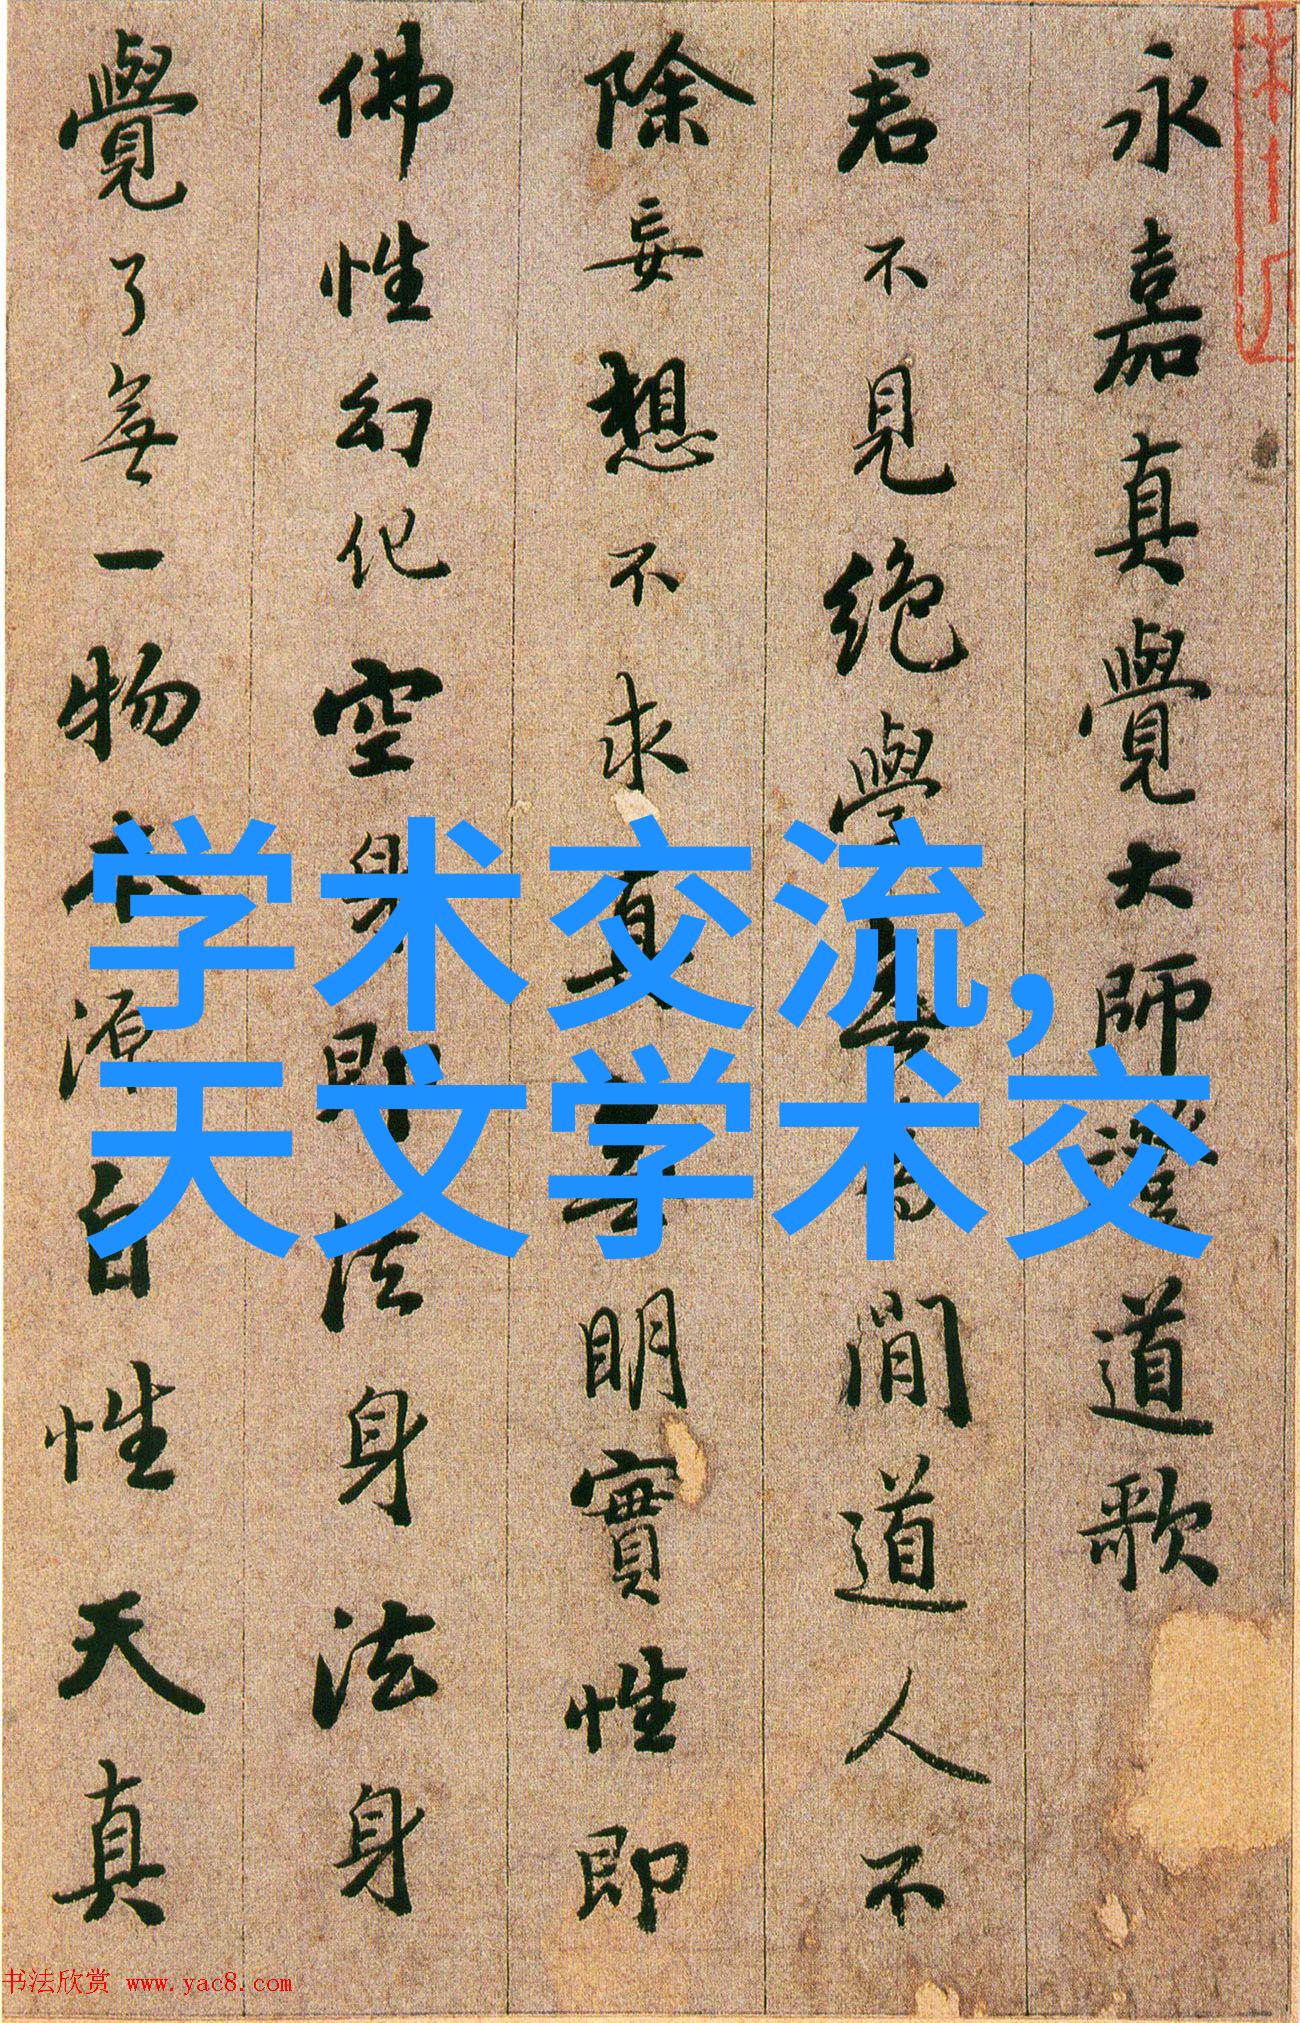 永嘉真覺大師證道歌
君不見絕學無為閒道人不
除妄想不求真無明實性即
佛性幻化空身即法身法身
覺了無一物本源自性天真
学术交流,
天文学术交
书法欣赏 www.yac8.com